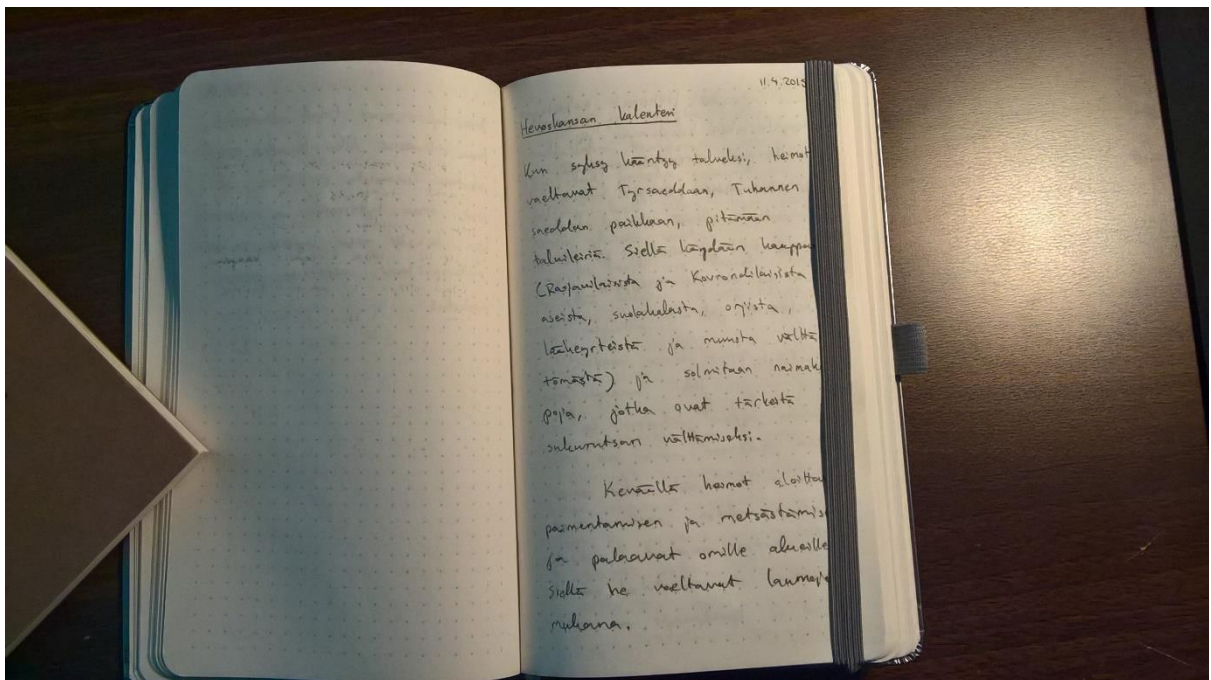 11.4.2015
Hevoskansan kalenteri
Kun syksy kääntyy talveksi, heimot
vaeltavat Tyrsaeddaan, Tuhannen
saeddan paikkaan, pitämään
talvileiriä. Siellä käydään kauppa
(Rasjanilaisista ja Kourondilaisista
aseista, suolakalasta, orjista,
lääkeyrteistä ja muusta vältt
tömästä) ja solmitaan naimak
poja, jotka ovat tärkeitä
sukurutsan välttämiseksi.
Keväällä heimot aloitta
paimentamisen ja metsästämis
ja palaavat omille alueille
Siellä he vaeltavat laumoje
mukana.